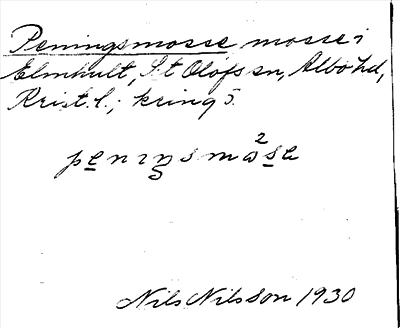 Peningsmosse mosse i
Elmhult, S:t Olofs sn, Albo hd,
Krist. l.; kring 5.
penıŋsmɷ²se
Nils Nilsson 1930